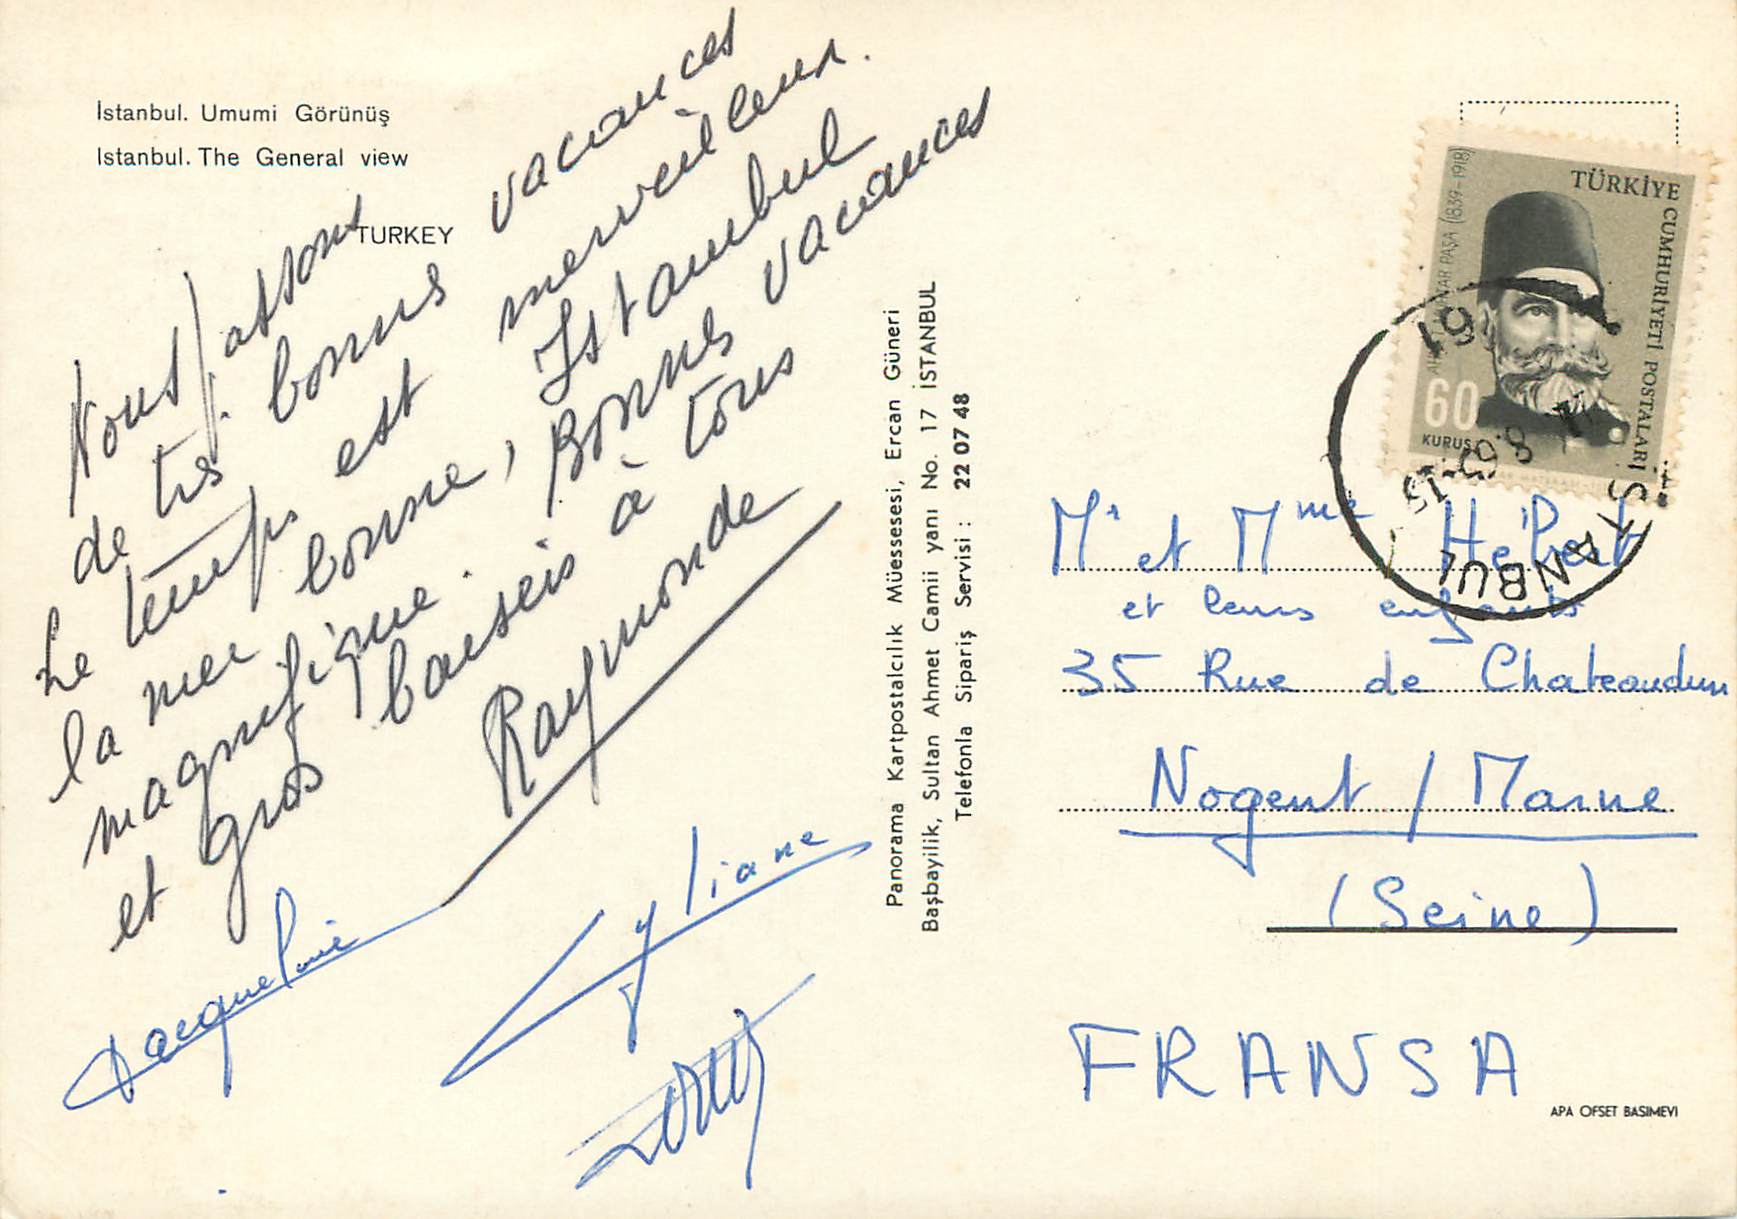 İstanbul. Umumi Görünüş
Istanbul. The General view
TURKEY
Nous passons
de très bonnes vacances
Le temps est merveilleux.
la mer bonne, Istambul
magnifique. Bonnes vacances
et gros baisers à tous
Raymonde
Jacqueline
Lyliane
Panorama Kartpostalcılık Müessesesi, Ercan Güneri
Başbayilik, Sultan Ahmet Camii yanı No. 17 İSTANBUL
Telefonla Sipariş Servisi : 22 07 48
TÜRKİYE
CUMHURİYETİ POSTALARI
PAŞA (1839-1918)
60
KURUŞ
Mr et Mme Hébert
et leurs enfants
35 Rue de Chateaudun
Nogent / Marne
(Seine)
FRANSA
APA OFSET BASIMEVI